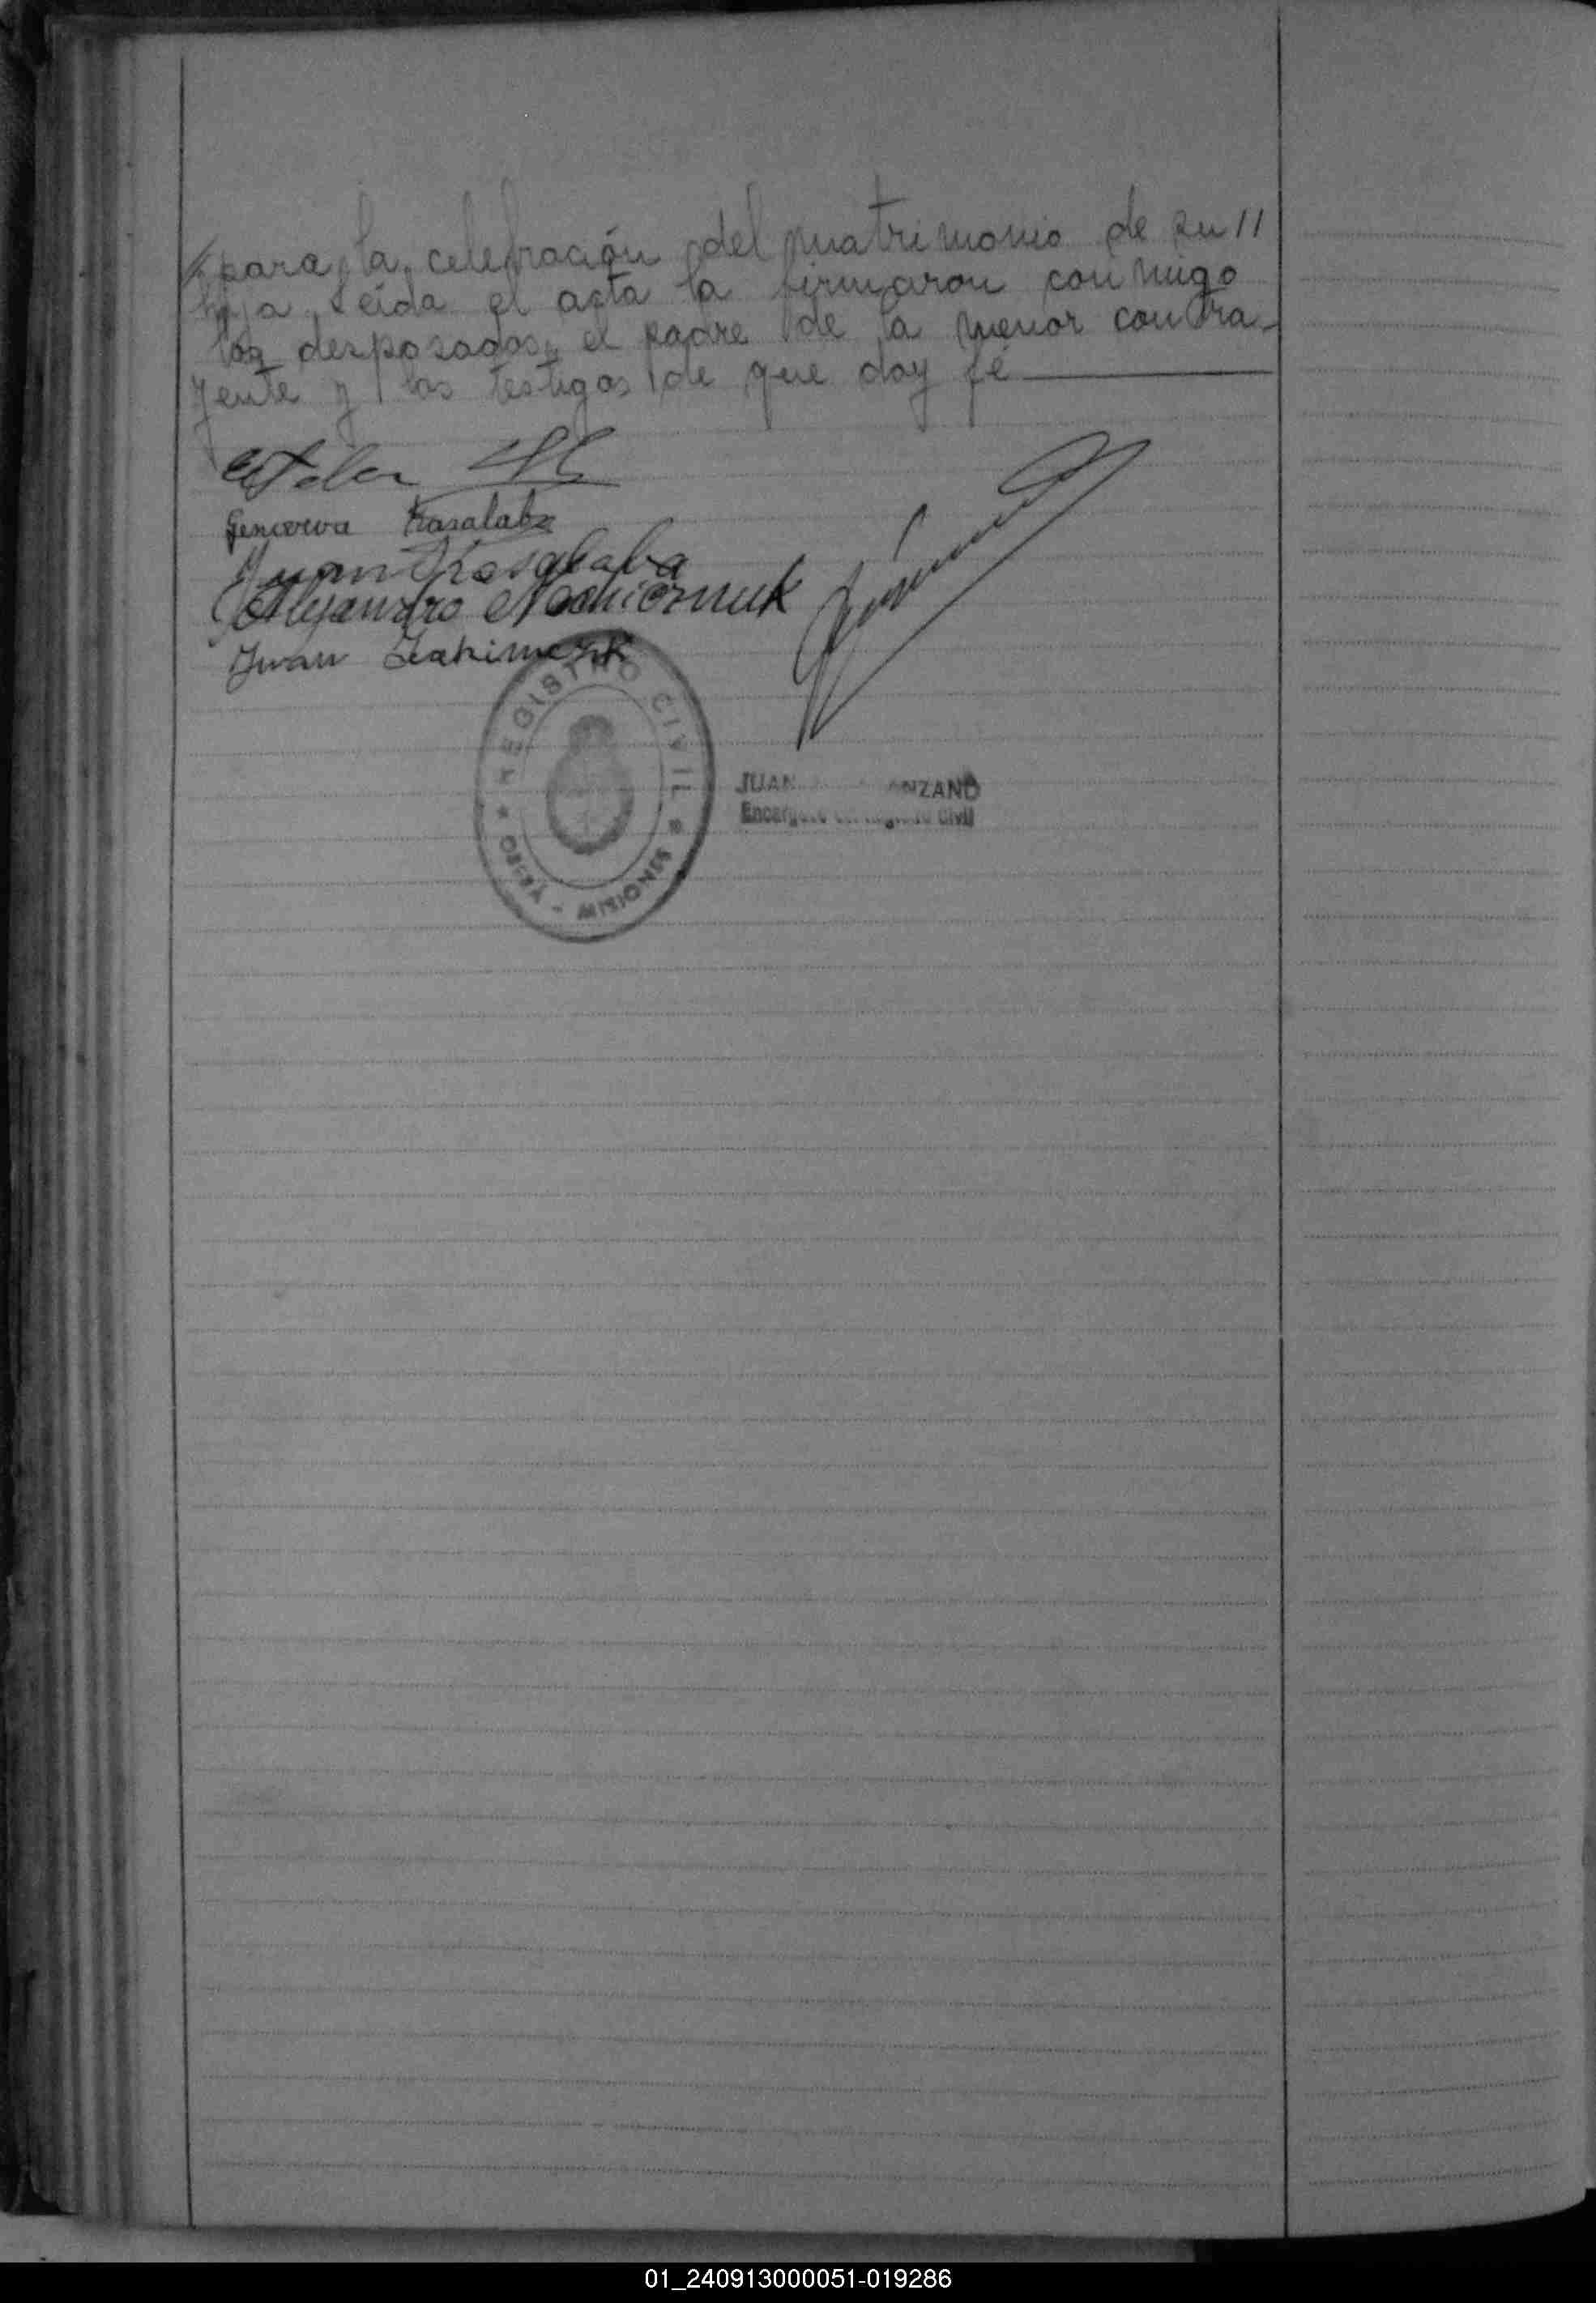 para la celebración del matrimonio de su //
hija. Leída el acta la firmaron conmigo
los desposados, el padre de la menor contra-
yente y los testigos de que doy fé
Genoveva Kasalaba
Juan Kasalaba
Alejandro
Juan
REGISTRO CIVIL
OBERÁ - MISIONES
JUAN NZANO
Encargado del Registro Civil
01_240913000051-019286